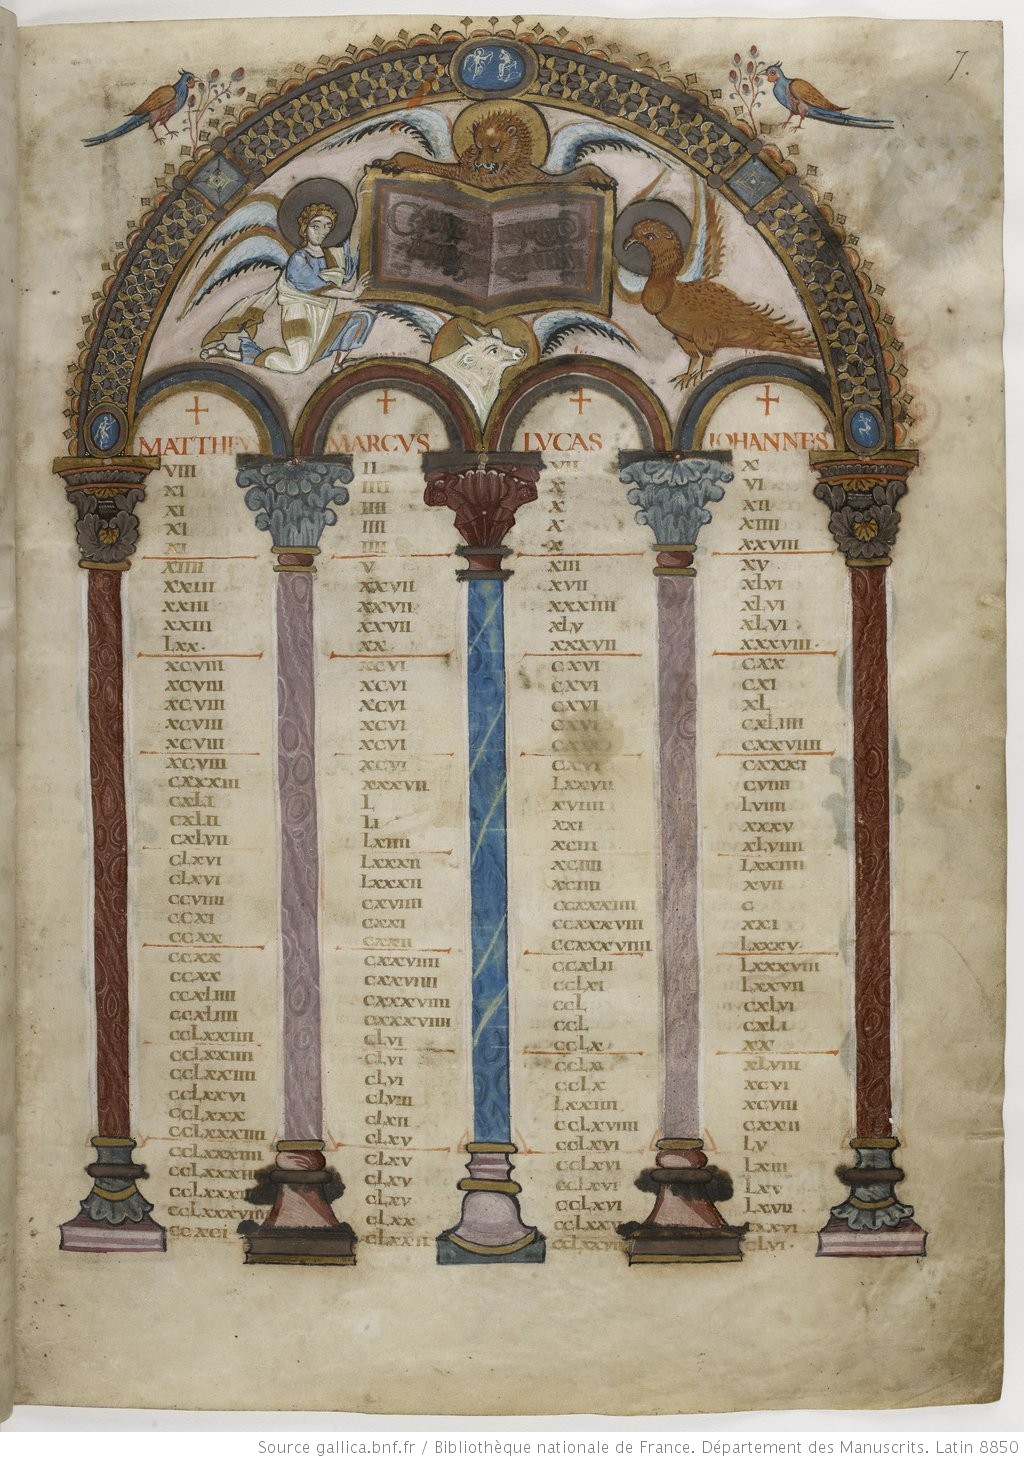 7.
MATTHEVS
VIII
XI
XI
XI
XI
XIIII
XXIII
XXIII
XXIII
LXX·
XCVIII
XCVIII
XCVIII
XCVIII
XCVIII
XCVIII
CXXXIII
CXLI
CXLII
CXLVII
CLXVI
CLXVI
CCVIIII
CCXI
CCXX
CCXX
CCXX
CCXLIIII
CCXLIIII
CCLXXIIII
CCLXXIIII
CCLXXIIII
CCLXXVI
CCLXXX
CCLXXXIIII
CCLXXXIIII
CCLXXXVIIII
CCXCI
MARCVS
II
IIII
IIII
IIII
IIII
V
XXVII
XXVII
XXVII
XX
XCVI
XCVI
XCVI
XCVI
XCVI
XCVI
XXXVII
L
LI
LXIIII
LXXXII
LXXXII
CXVIIII
CXXI
CXXII
CXXVIIII
CXXVIIII
CXXXVIIII
CXXXVIIII
CLVI
CLVI
CLVI
CLVIII
CLXII
CLXV
CLXV
CLXV
CLXV
CLXX
CLXXII
LVCAS
VII
X
X
X
X
XIII
XVII
XXXIIII
XLV
XXXVII
CXVI
CXVI
CXVI
CXVI
CXVI
LXXVII
XVIIII
XXI
XCIII
XCIIII
XCIIII
CCXXXIIII
CCXXXVIII
CCXXXVIIII
CCXLII
CCLXI
CCL
CCL
CCLX
CCLX
CCLX
LXXIIII
CCLXVIII
CCLXVI
CCLXVI
CCLXVI
CCLXVI
CCLXXV
IOHANNES
X
VI
XII
XIIII
XXVIII
XV
XLVI
XLVI
XLVI
XXXVIII·
CXX
CXI
XL
CXLIIII
CXXVIIII
CXXXI
CVIIII
LVIIII
XXXV
XLVIIII
LXXIIII
XVII
C
XXI
LXXXV
LXXXVIII
LXXVII
CXLVI
CXLI
XX
XLVIII
XCVI
XCVIII
CXXII
LV
LXIII
LXV
LXVII
CXXVI
CLVI
Source gallica.bnf.fr / Bibliothèque nationale de France. Département des Manuscrits. Latin 8850